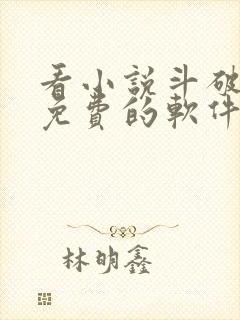 看小説斗破
免費的軟件
林明鑫